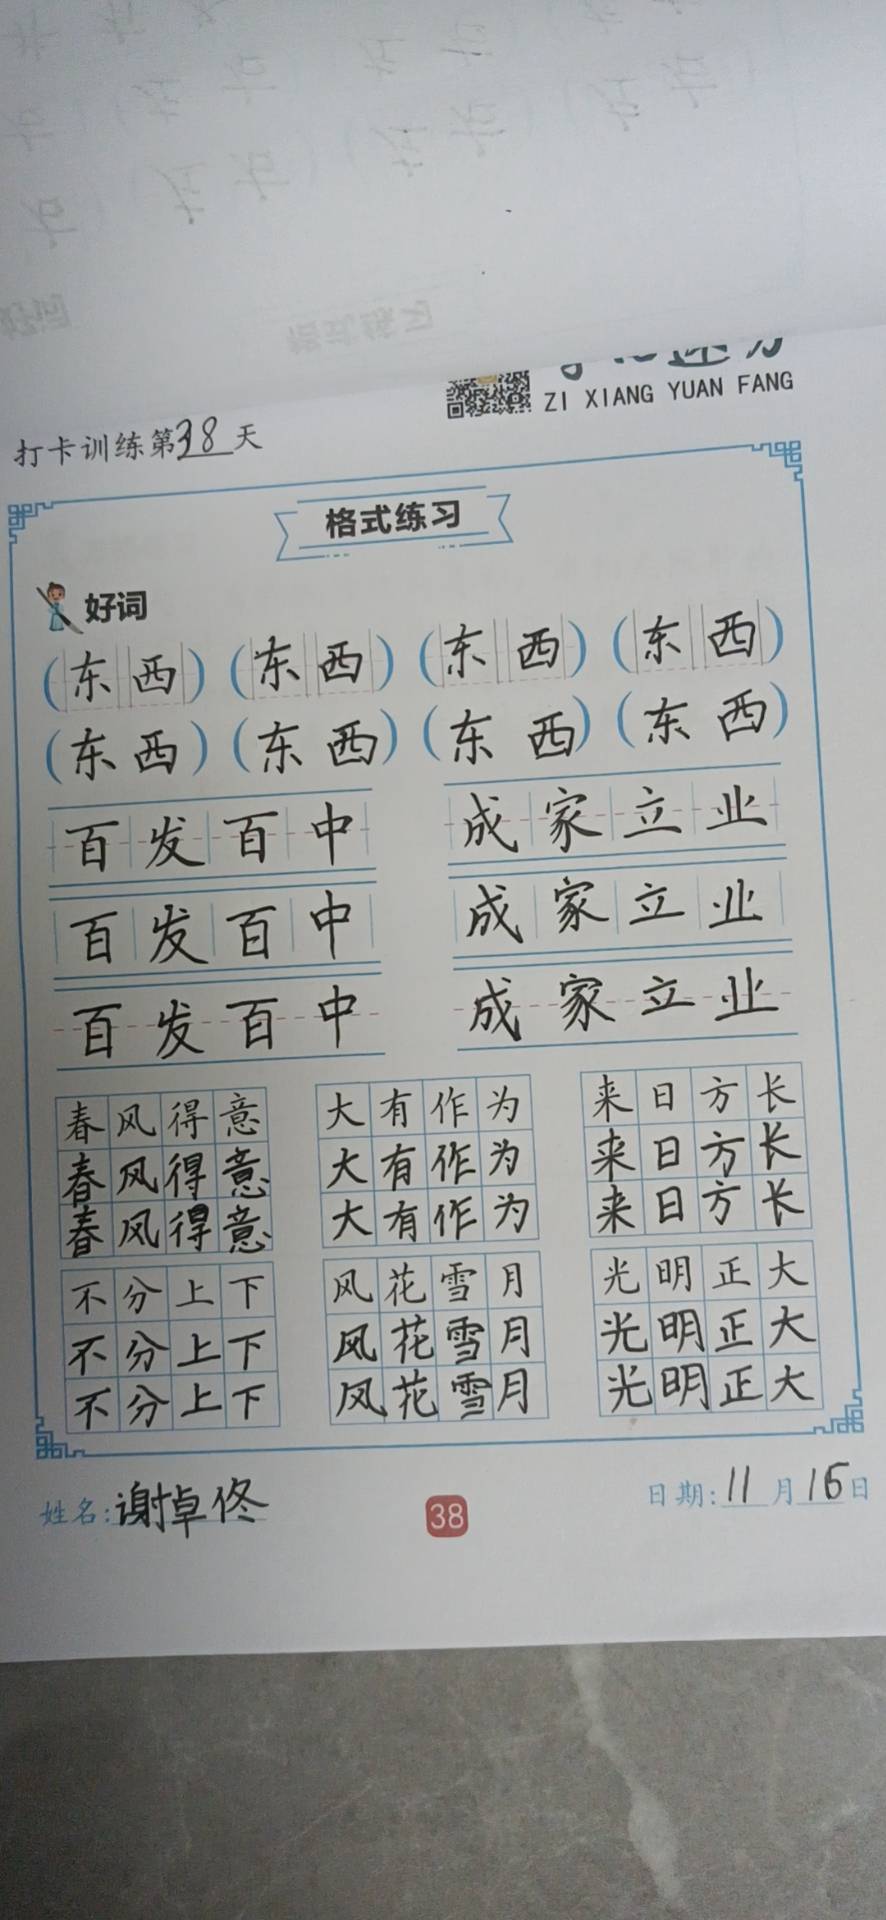 ZI XIANG YUAN FANG
打卡训练第38天
格式练习
好词
(东西)(东西)(东西)(东西)
(东西)(东西)(东西)(东西)
百发百中 成家立业
百发百中 成家立业
百发百中 成家立业
春风得意 大有作为 来日方长
春风得意 大有作为 来日方长
春风得意 大有作为 来日方长
不分上下 风花雪月 光明正大
不分上下 风花雪月 光明正大
不分上下 风花雪月 光明正大
姓名:谢悼佟 38 日期:11月16日